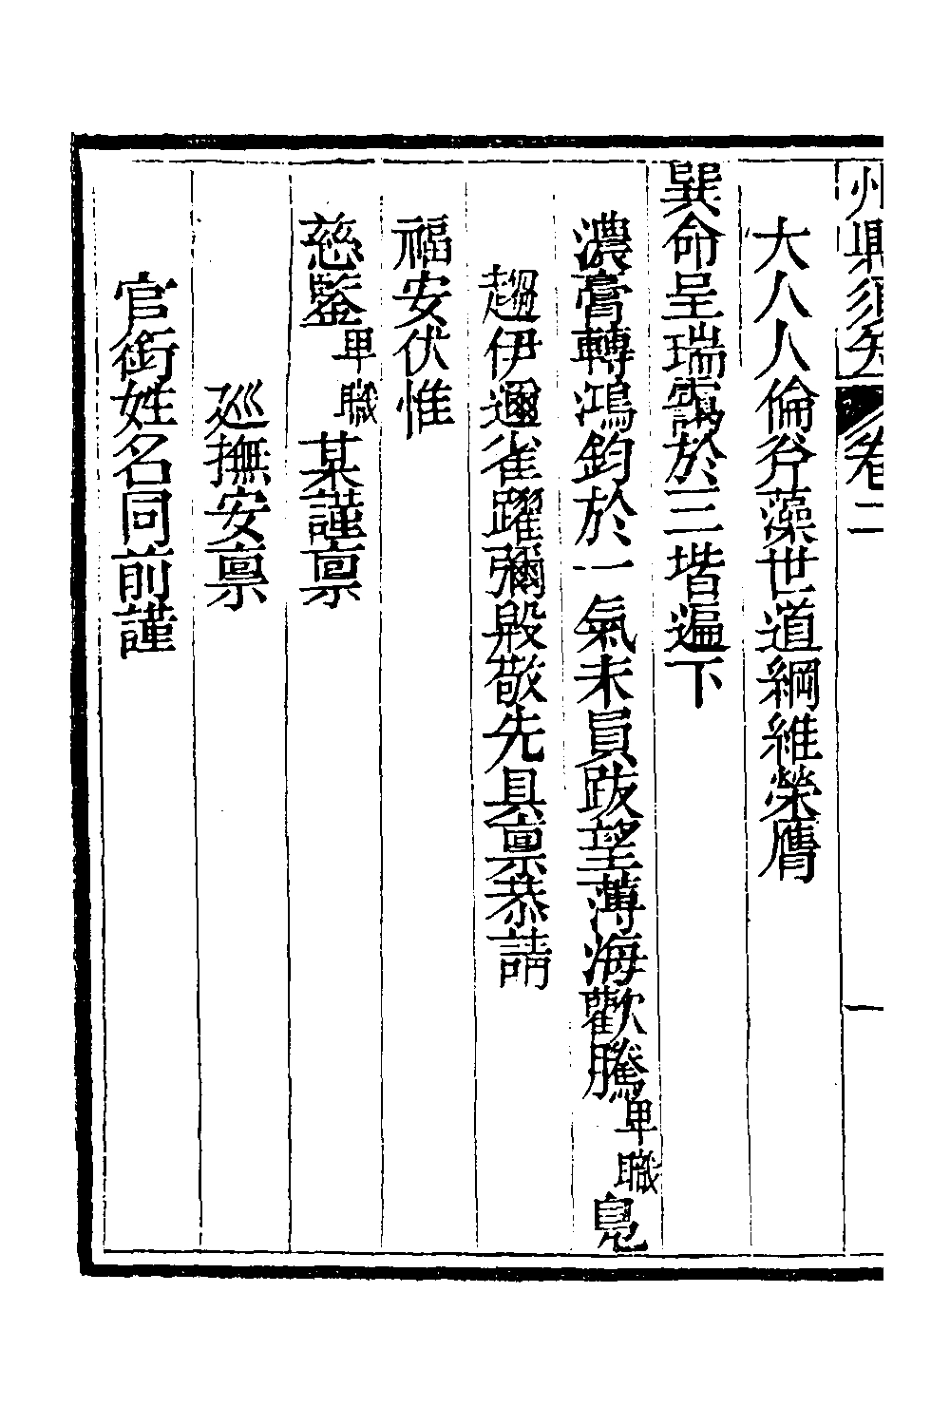 州縣須知 卷二 一
大人人倫斧藻世道綱維榮膺
巽命呈瑞靄於三堦遍下
濃膏轉鴻鈞於一氣未員跂望薄海歡騰卑職鳧
趨伊邇雀躍彌殷敬先具稟恭請
福安伏惟
慈鑒卑職某謹稟
廵撫安稟
官銜姓名同前謹